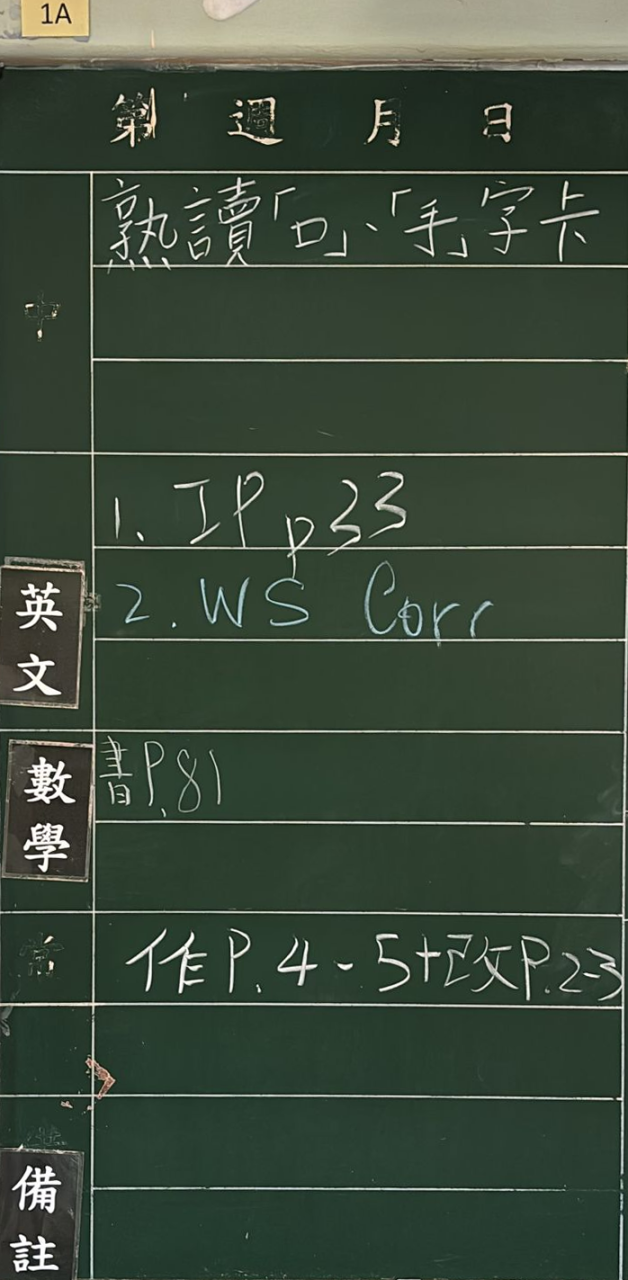 1A
第 週 月 日
中
熟讀「口」、「手」字卡
英文
1. IP p33
2. WS Corr
數學
書P.81
常
作P.4-5+改P.2-3
備註